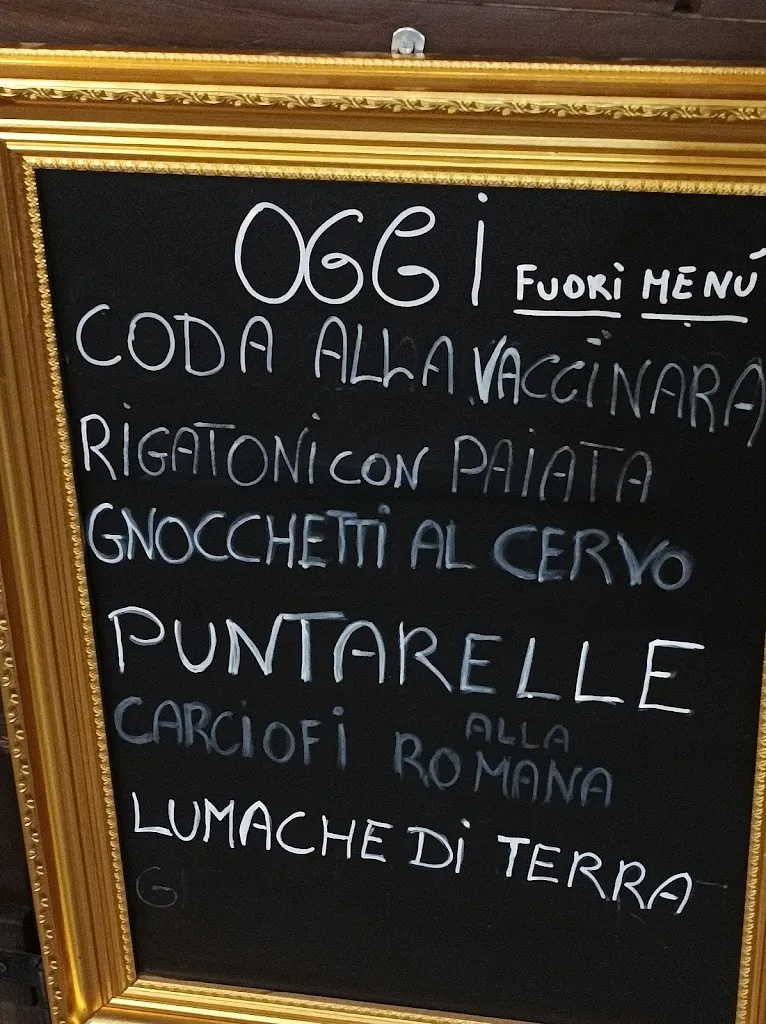 OGGI FUORI MENÚ
CODA ALLA VACCINARA
RIGATONI CON PAIATA
GNOCCHETTI AL CERVO
PUNTARELLE
CARCIOFI ALLA ROMANA
LUMACHE DI TERRA
G